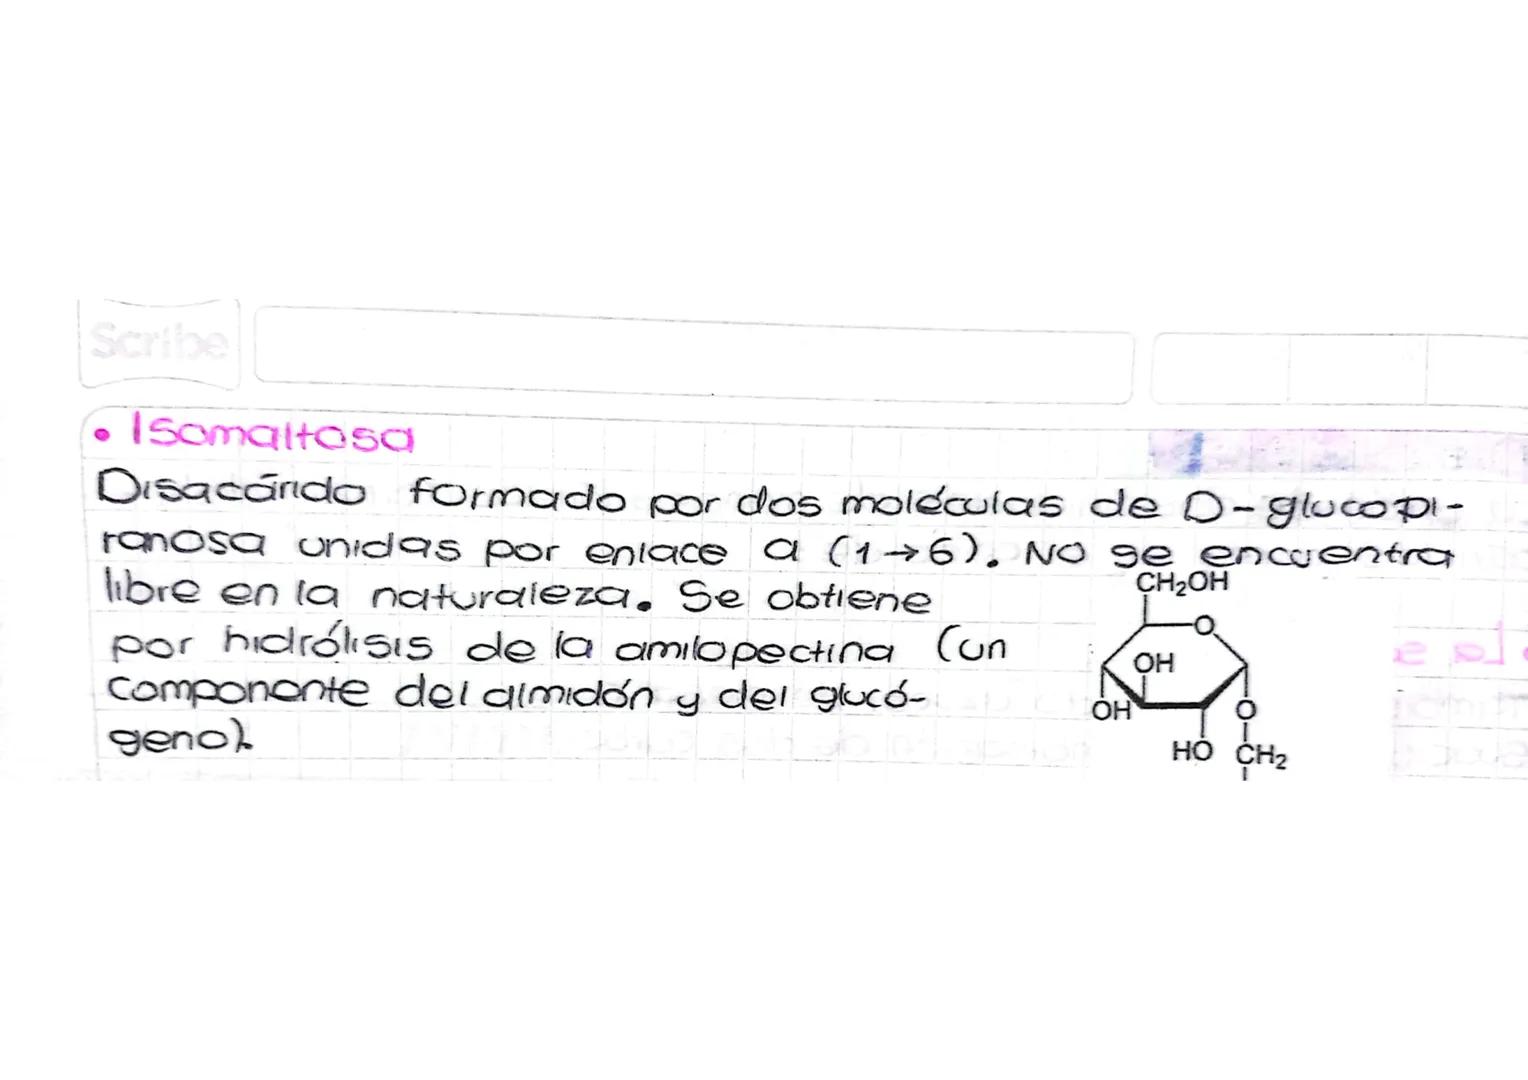 Scribe
• Isomaltosa
Disacárido formado por dos moléculas de D-glucopi-
ranosa unidas por enlace a (1→6). No se encuentra
libre en la naturaleza. Se obtiene
por hidrólisis de la amilopectina (un
componente del almidón y del glucó-
geno).
CH₂OH
O
OH
OH
O
HO CH₂